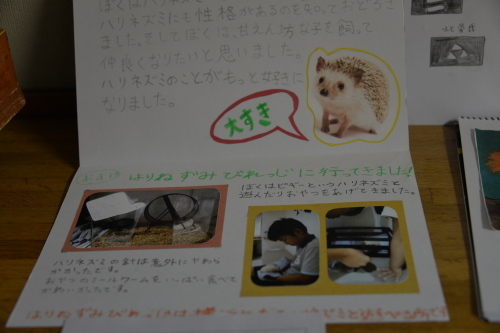 ぼくはハリネズミ
ハリネズミにも性格があるのを知っておどろき
ました。そしてぼくは、甘えん坊な子を飼って
仲良くなりたいと思いました。
ハリネズミのことがもっと好きに
なりました。
大すき
はりねずみびれっじに行ってきました!
ぼくはピギーというハリネズミと
遊んだりおやつをあげてきました。
ハリネズミの針は意外にやわら
かかったです。
おやつのミールワームをいっぱい食べて
かわいかったです。
はりねずみびれっじは